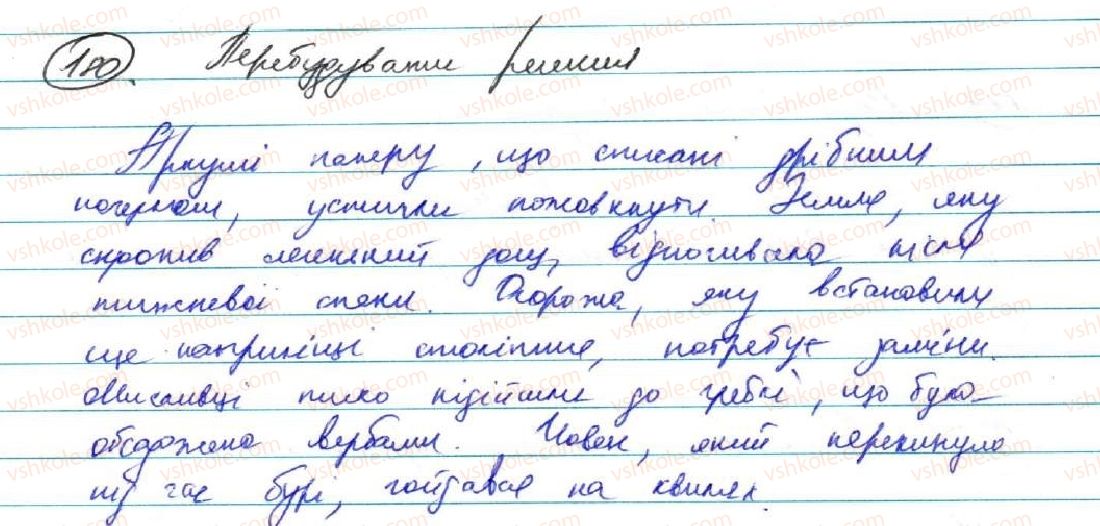 180. Перебудування речення
Аркуші паперу, що списані дрібним
почерком, устигли пожовкнути. Земля, яку
скропив летній дощ, відпочивала після
тижневої спеки. Огорожа, яку встановили
ще наприкінці століття, потребує заміни.
Мисливці тихо підійшли до греблі, що була
обсаджена вербами. Човен, який перекинуло
під час бурі, гойдався на хвилях.